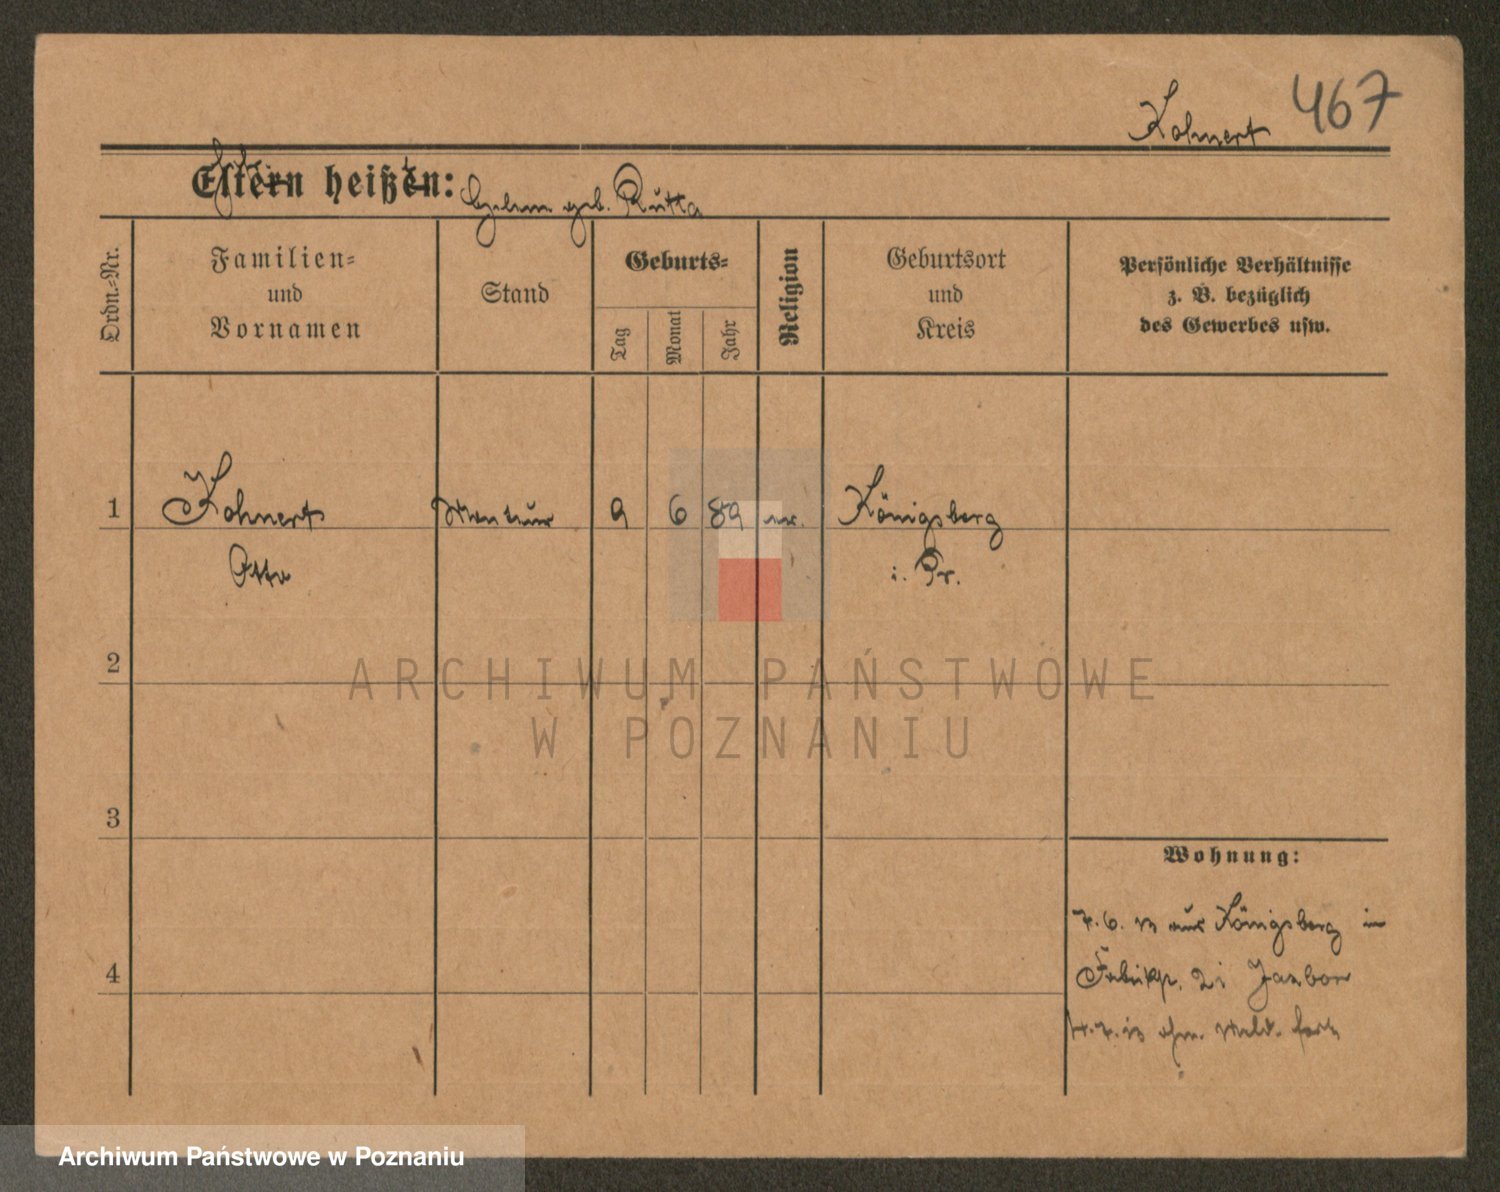 Kohnert 467
Eltern heißen: geb. Rutta
Ordn.-Nr.
Familien-
und
Vornamen
Stand
Geburts-
Tag
Monat
Jahr
Religion
Geburtsort
und
Kreis
Persönliche Verhältnisse
z. B. bezüglich
des Gewerbes usw.
1 Kohnert 9 6 89 Königsberg
Otto i. Pr.
2
3
4
Wohnung:
7.6.13 aus Königsberg in
Fabrikst. 21
4.7.13 ohne Meld. fort
ARCHIWUM PAŃSTWOWE
W POZNANIU
Archiwum Państwowe w Poznaniu